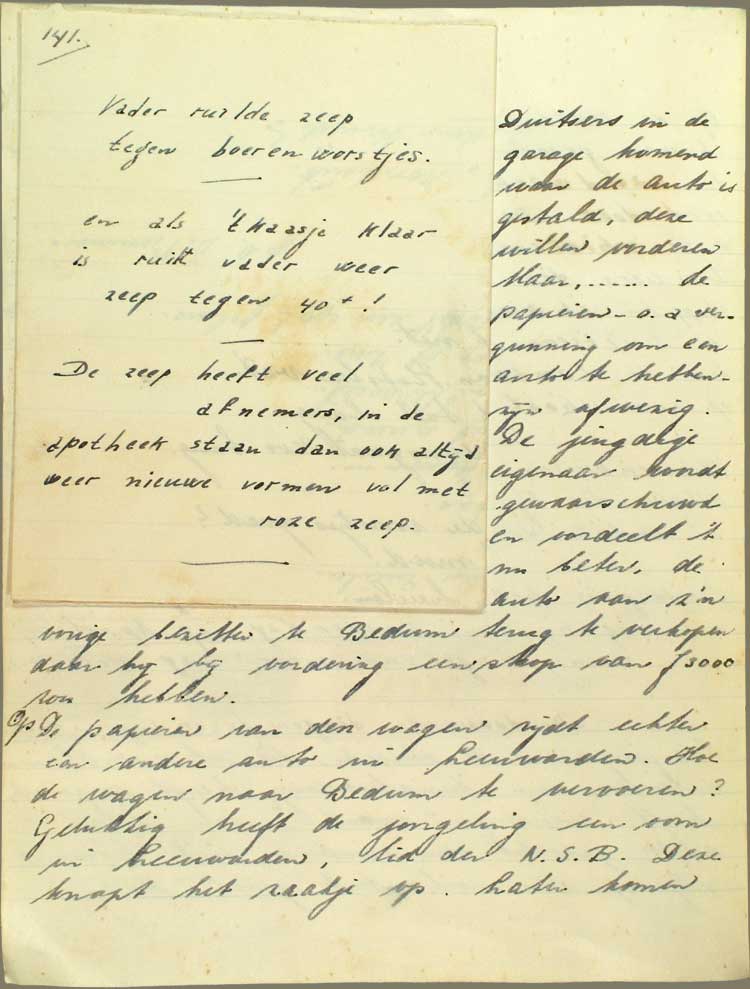 141.
Vader ruilde zeep
tegen boerenworstjes.
en als 't kaasje klaar
is ruilt vader weer
zeep tegen 40+!
De zeep heeft veel
afnemers, in de
apotheek staan dan ook altijd
weer nieuwe vormen vol met
roze zeep.
Duitsers in de
garage komend
waar de auto is
gestald, deze
willen vorderen
Maar,...... de
papieren - o.a ver-
gunning om een
auto te hebben -
zijn afwezig.
De jeugdige
eigenaar wordt
gewaarschuwd
en oordeelt 't
nu beter, de
auto aan z'n
vorige bezitter te Bedum terug te verkopen
daar hij bij vordering een strop van ƒ 3000
zou hebben.
Op De papieren van den wagen rijdt echter
een andere auto in Leeuwarden. Hoe
de wagen naar Bedum te vervoeren?
Gelukkig heeft de jongeling een oom
in Leeuwarden, lid der N.S.B. Deze
knapt het zaakje op. Later komen